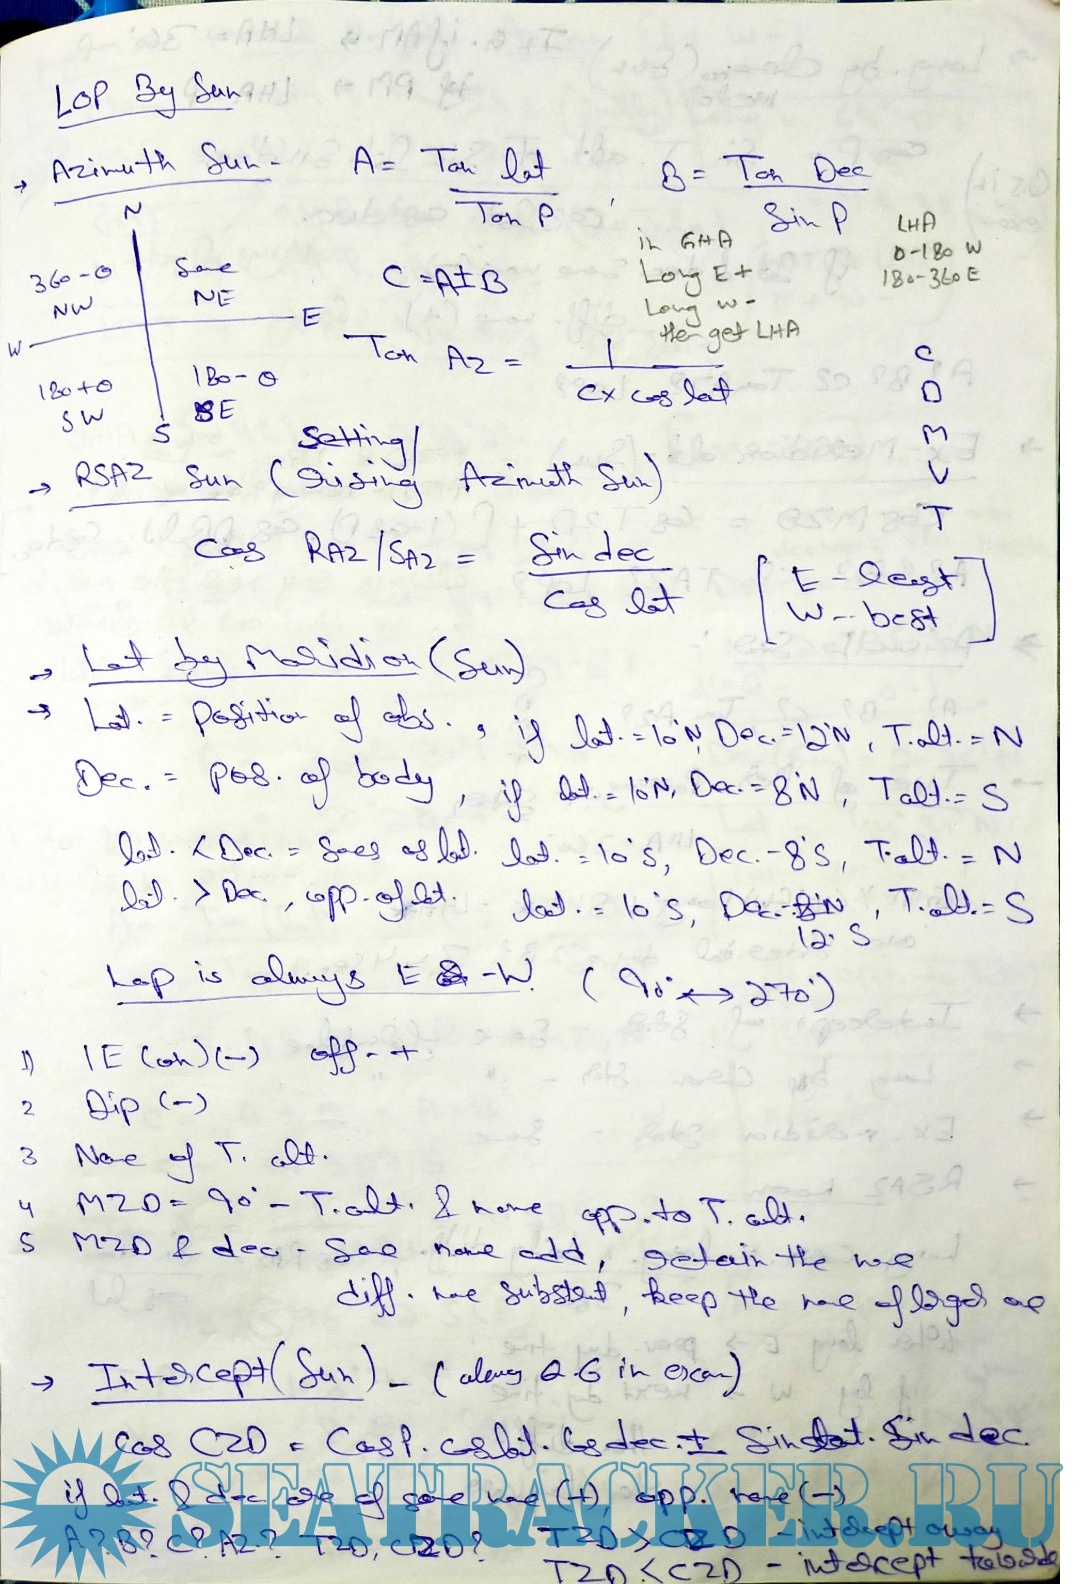 LOP By Sun
→ Azimuth Sun - A = Tan lat / Tan P , B = Tan Dec / Sin P
N
360-θ NW Same NE
W E
180+θ SW 180-θ SE
S
C = A±B
in GHA
Long E +
Long W -
then get LHA
LHA
0-180 W
180-360 E
Tan AZ = 1 / C x cos lat
C
D
M
V
T
setting/
→ RSAZ Sun (rising Azimuth Sun)
Cos RAZ/SAZ = Sin dec / Cos lat
[E - least
W - best]
→ Lat by Meridian (Sun)
→ Lat. = position of obs. , if lat. = 10°N, Dec. = 12°N, T.alt. = N
Dec. = pos. of body , if lat. = 10°N, Dec. = 8°N, T alt. = S
lat. < Dec. = same as lat. lat. = 10°S, Dec. - 8°S, T.alt. = N
lat. > Dec. , opp. of lat. lat. = 10°S, Dec. - 8°N , T.alt. = S
12° S
Lop is always E - W. (90° ↔ 270°)
1) IE (on) (-) off - +
2 Dip (-)
3 Name of T. alt.
4 MZD = 90° - T.alt. & name opp. to T. alt.
5 MZD & dec - Same name add, retain the name
diff. name substract, keep the name of larger one
→ Intercept (Sun) - (always Q.6 in exam)
Cos CZD = Cos P. cos lat. Cos dec. ± Sin lat. Sin dec
if lat. & dec are of same name (+), opp. name (-)
A? B? C? AZ? TZD, CZD? TZD > CZD - intercept away
TZD < CZD - intercept towards
SEATRACKER.RU